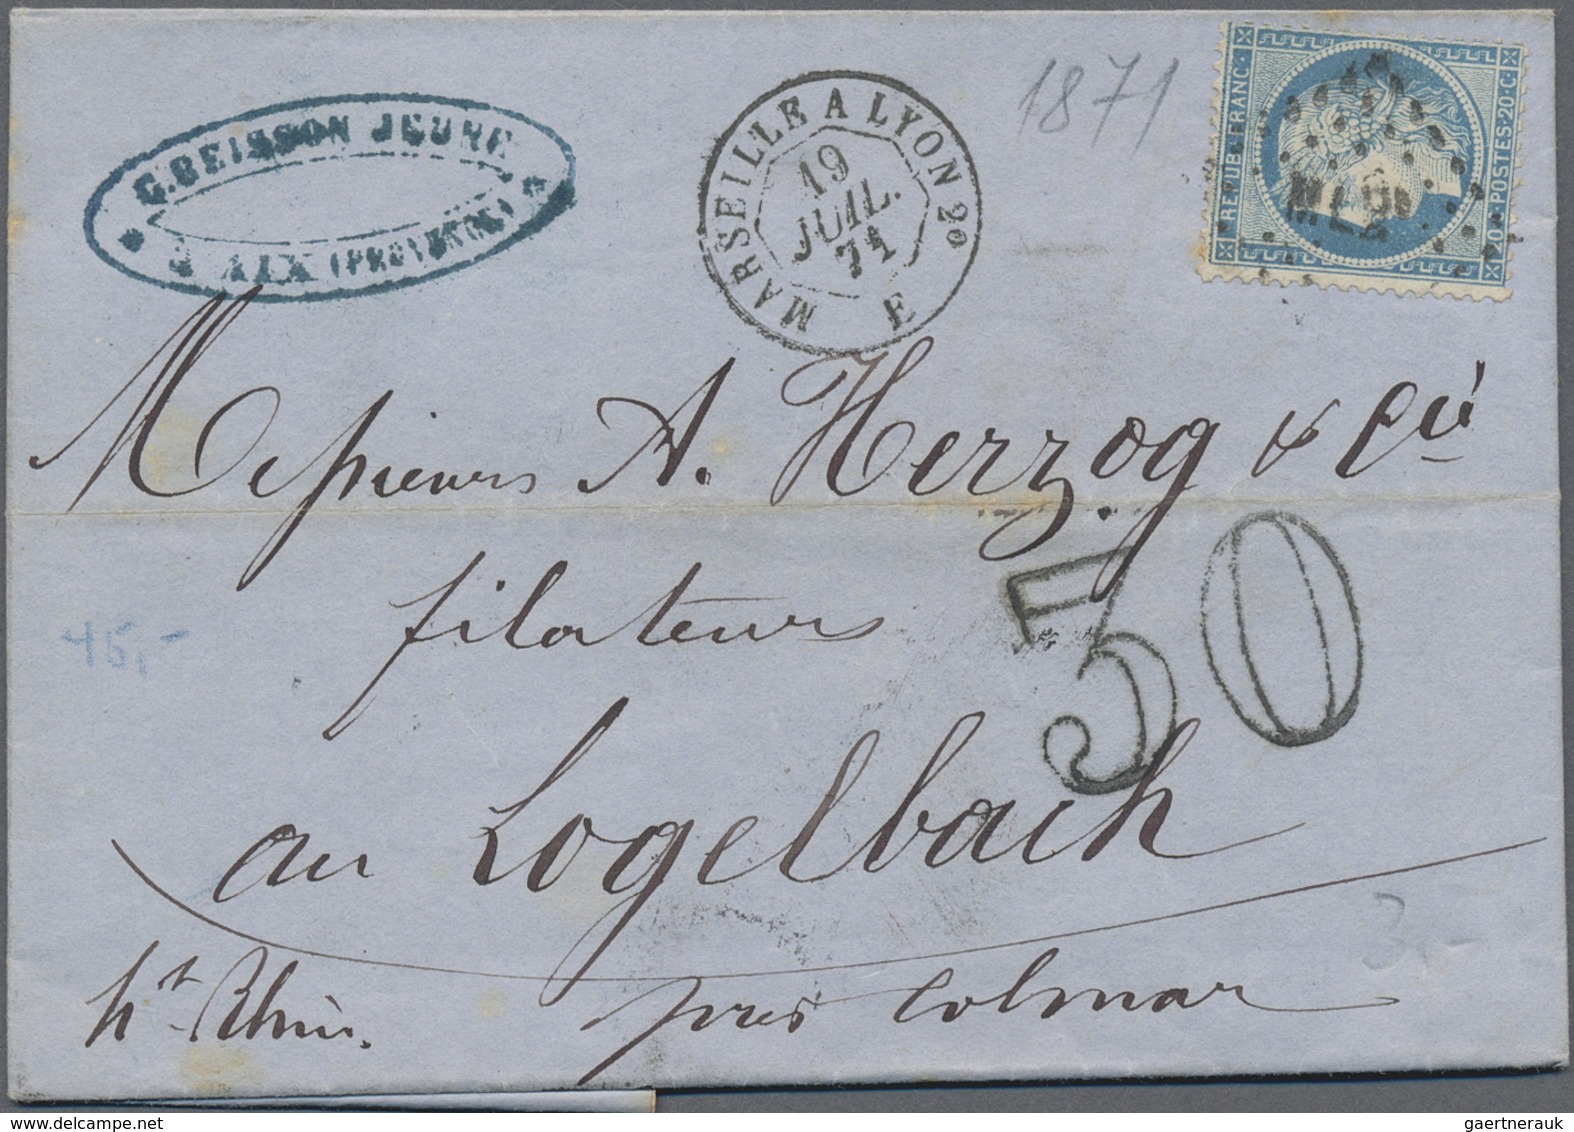 C. BEISSON JEUNE
À AIX (PROVENCE)
MARSEILLE A LYON 2º
19
JUIL.
71
E
1871
REPUB. FRANC.
20·POSTES·20·C·
ML2º
Messieurs A. Herzog & Cie
filateurs
30
au Logelbach
45,-
3,-
ht. Rhin. près Colmar
gaertnerauk